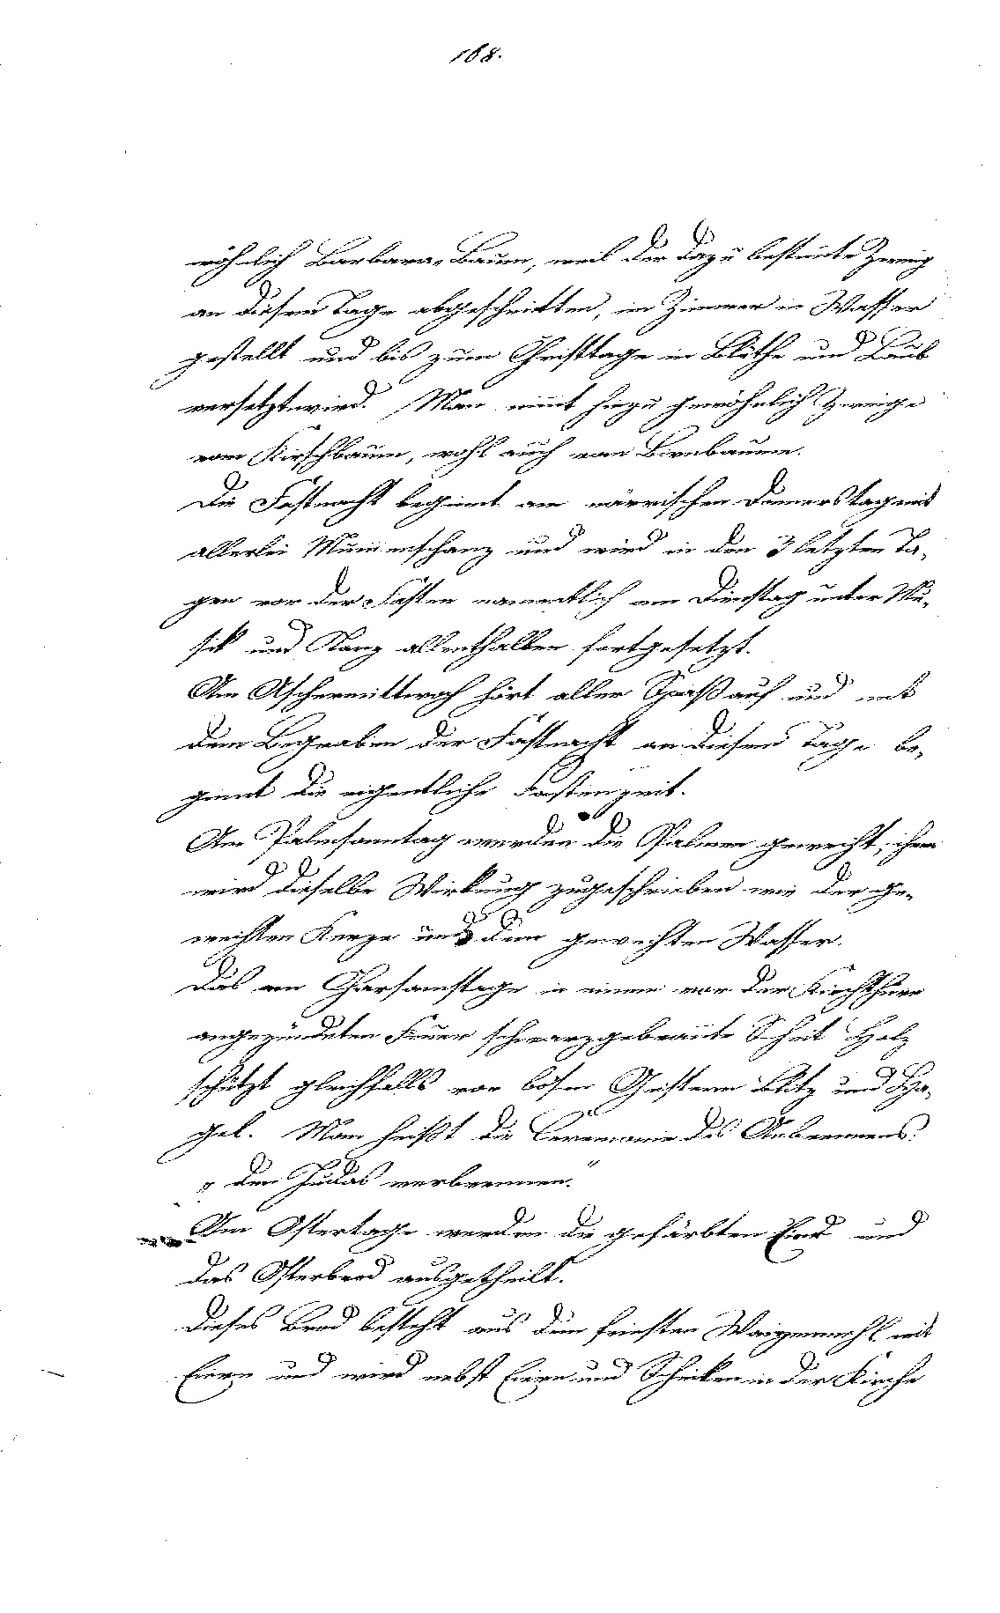 168.
wöhnlich Barbara-Baum, weil der dazu bestimte Zweig
an diesem Tage abgeschnitten, im Zimmer in Wasser
gestellt und bis zum Christtage in Blüthe und Laub
versetzt wird. Man nimt hiezu gewöhnlich Zweige
vom Kirschbaum, wohl auch vom Birnbaume.
Die Fastnacht beginnt am närrischen Donnerstag mit
allerlei Mummenschanz und wird in den 3 letzten Ta-
gen vor der Fasten namentlich am Dienstag unter Mu-
sik und Tanz allenthalben fortgesetzt.
Am Aschermittwoch hört aller Spaß auf und mit
dem Begraben der Fastnacht an diesem Tage be-
ginnt die eigentliche Fastenzeit.
Am Palmsonntag werden die Palmen geweiht, ihnen
wird dieselbe Wirkung zugeschrieben wie der ge-
weihten Kerze und dem geweihten Wasser.
Das am Charsamstage in einem vor der Kirchthüre
angezündeten Feuer schwarzgebrannte Scheit Holz
schützt gleichfalls vor bösen Geistern Blitz und Ha-
gel. Man heißt die Ceremonie des Anbrennens:
„den Judas verbrennen."
Am Ostertage werden die gefärbten Eier und
das Osterbrod ausgetheilt.
Dieses Brod besteht aus dem feinsten Waizenmehl mit
Eiern und wird nebst Eiern und Schinken in der Kirche